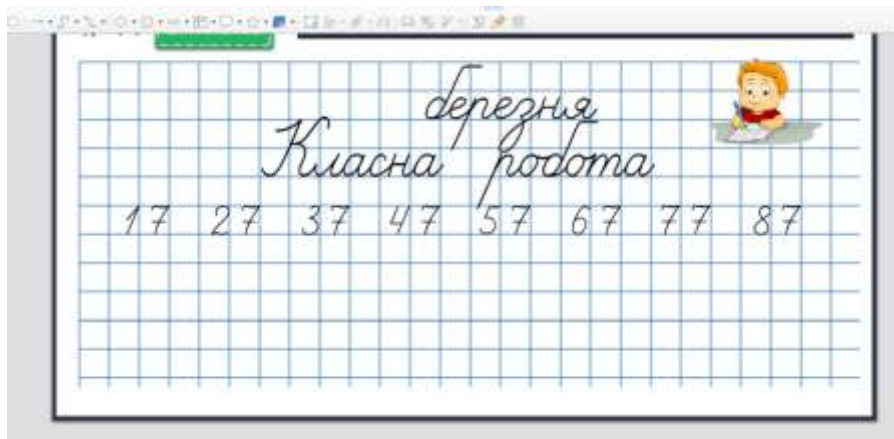 березня
Класна робота
17 27 37 47 57 67 77 87